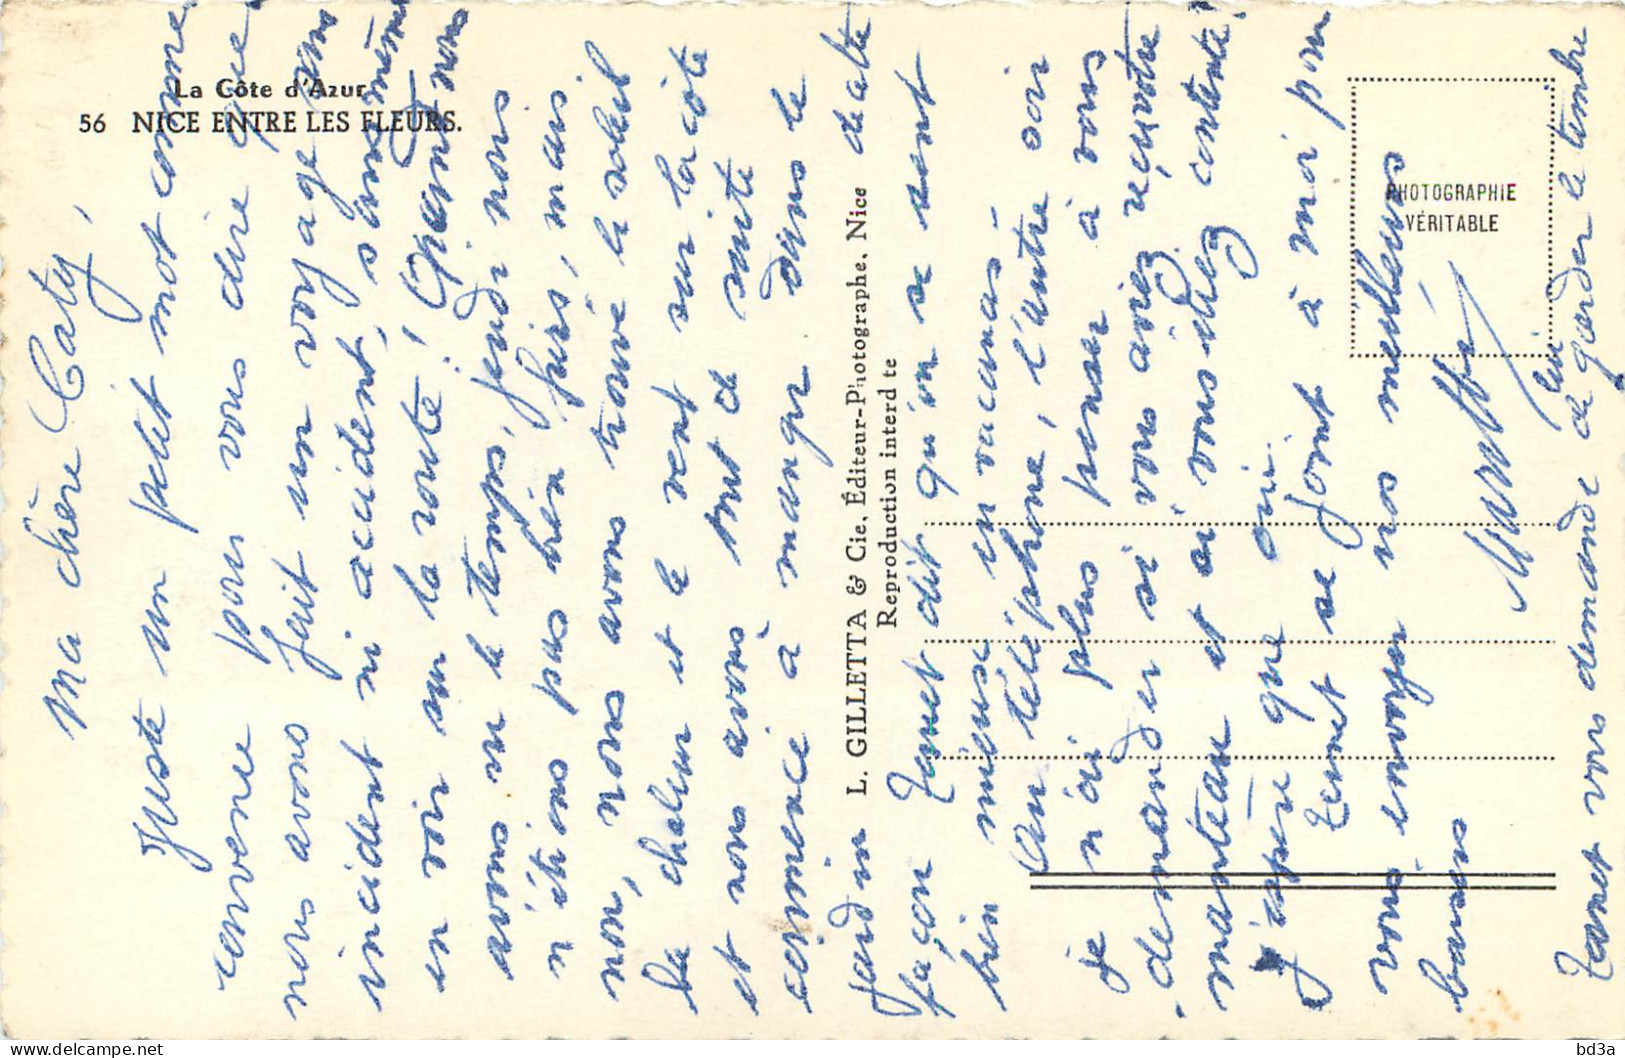 La Côte d'Azur
56 NICE ENTRE LES FLEURS.
Ma chère Caty,
Juste un petit mot comme
convenu pour vous dire que
nous avons fait un voyage sans
incident ni accident, sans même
en voir sur la route! Quand nous
avons vu le temps, jeudi nous
n'étions pas bien fiers, mais
non, nous avons trouvé le soleil
la chaleur et le vent sur la côte
et nous avons tout de suite
commencé à manger dans le
jardin
L. GILLETTA & Cie, Éditeur-Photographe, Nice
Reproduction interdite
de cette
façon Zanet dit qu'on se sent
bien mieux en vacances
Au téléphone, l'autre soir
je n'ai plus penser à vous
demander si vous aviez reçu votre
manteau et si vous étiez contente!
J'espère que oui.
Zanet se joint à moi pour
vous envoyer nos meilleurs
baisers
Zanet vous demande de lui garder le timbre
PHOTOGRAPHIE
VÉRITABLE
bd3a